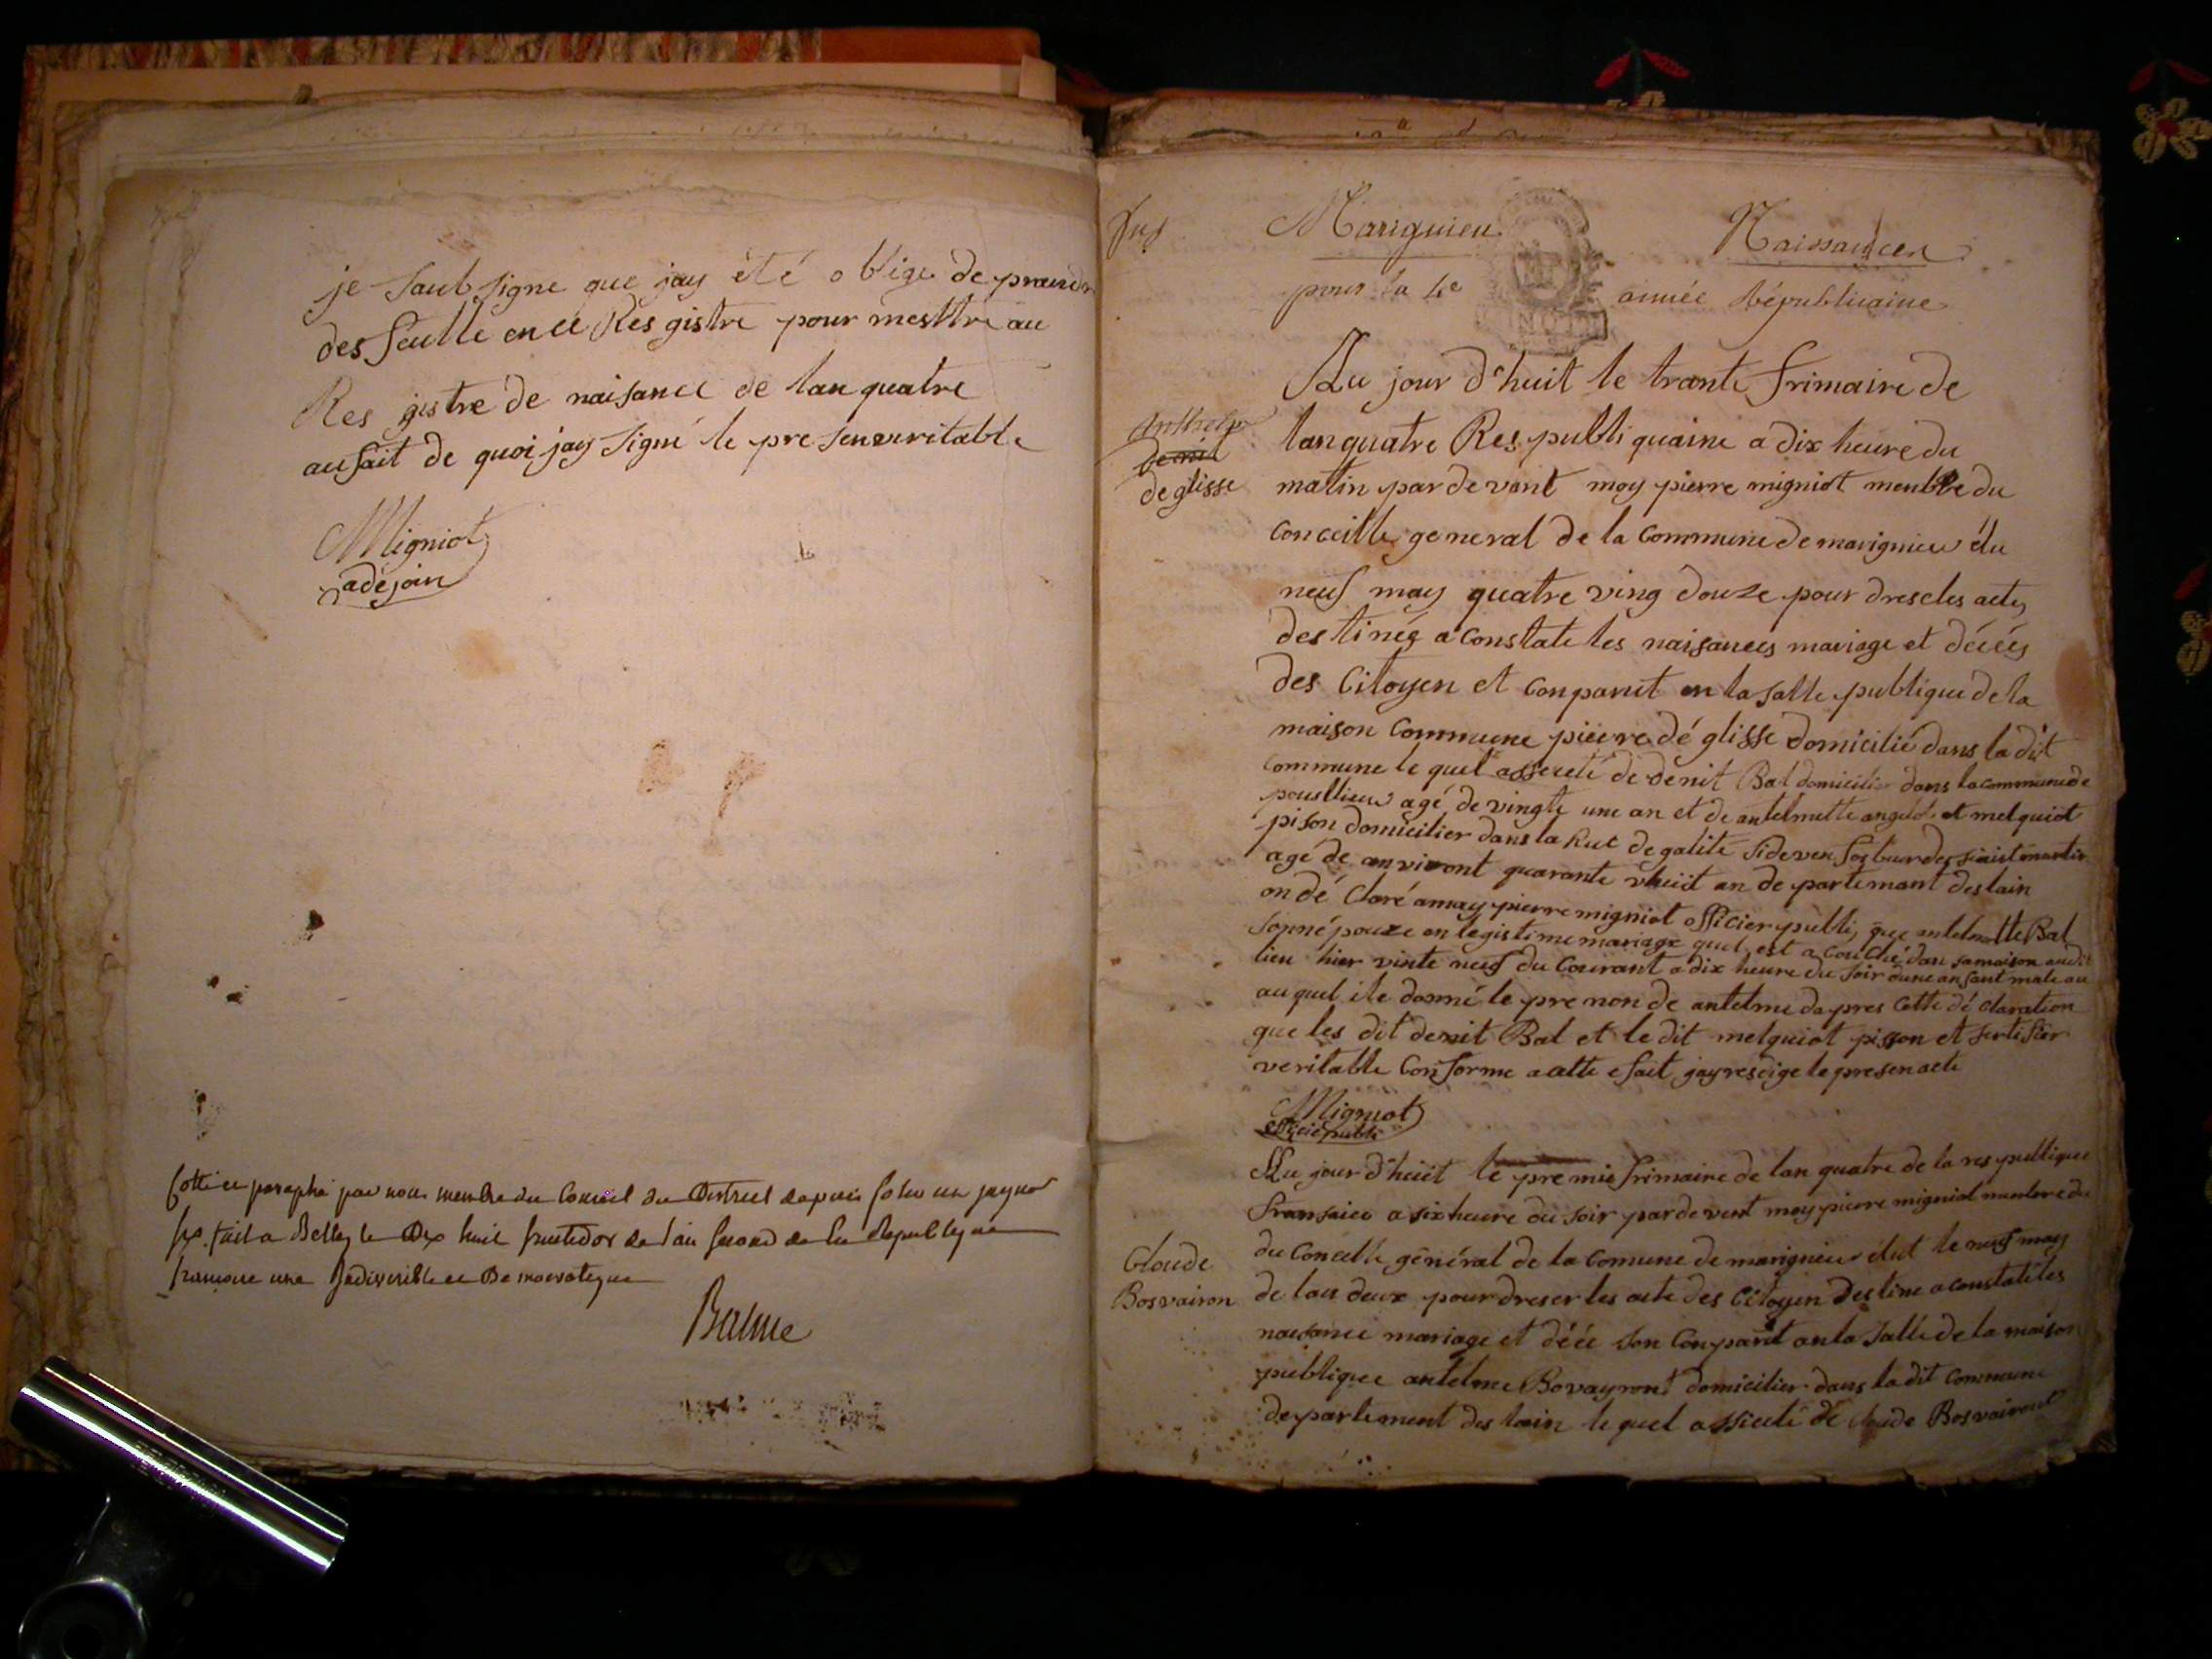 je saub signe que jay été oblige de prandr
des feulle en ce Res gistre pour mesttre au
Res gistre de naisance de lan quatre
aufait de quoi jay signé le presenveritable
Migniot
adejoin
Cotté et paraphé par nous membre du Conseil du District depuis folio un jusqu
six. fait a Belley le Dix huit fructidor de l'an second de la Republique
francaise une Indivisible et Democratique
Balme
Marignieu
Naissances
pour la 4e année républicaine
Au jour d'huit le trante frimaire de
lanquatre Res publi quaine a dix heure du
matin par devant moy pierre migniot menbre du
conceille general de la Commune de marignieu élu
neuf may quatre ving douze pour dres cles actes
destinés a constate les naisances mariage et décés
des Citoyen et Conparut en la salle publique de la
maison Commune pierre dé glisse domicilié dans la dit
commune le quel assereté de denit Bal domicilie dans la commune de
pouslieu agé de vingte une an et de antelmette angelot et melquiot
pison domicilier dans la Rue de galité sideven fosburdes saint martin
agé de anviront quarante vhuit an de partemant deslain
on dé Claré a may pierre migniot officier publi, que antelmette Bal
sonnépouze en legistime mariage quel est acouché dan samaison audit
lieu hier vinte neuf du Courant a dix heure du soir dune ansant male au
au quel ile donné le pre non de antelme dapres Cette dé claration
que les dit denit Bal et le dit melquiot pisson et sertifier
veritable Conforme a cette e fait jay resdige le presenacte
Migniot
officié publi
Anthelme
denit
deglisse
Au jour d'huit le premie frimaire de lan quatre de la res publique
fransaice a six heure du soir par de vent moy pierre migniot menbre du
du Conceille général de la Comune de marignieu élut le neuf may
de lan deux pour dreser les acte des Citoyen destine a constaté les
naisance mariage et décé son Conparut an la salle de la maison
publique antelme Bovayront domicilier dans la dit Commune
departement des lain le quel assicete de Claude Bosvairont
Claude
Bosvairon